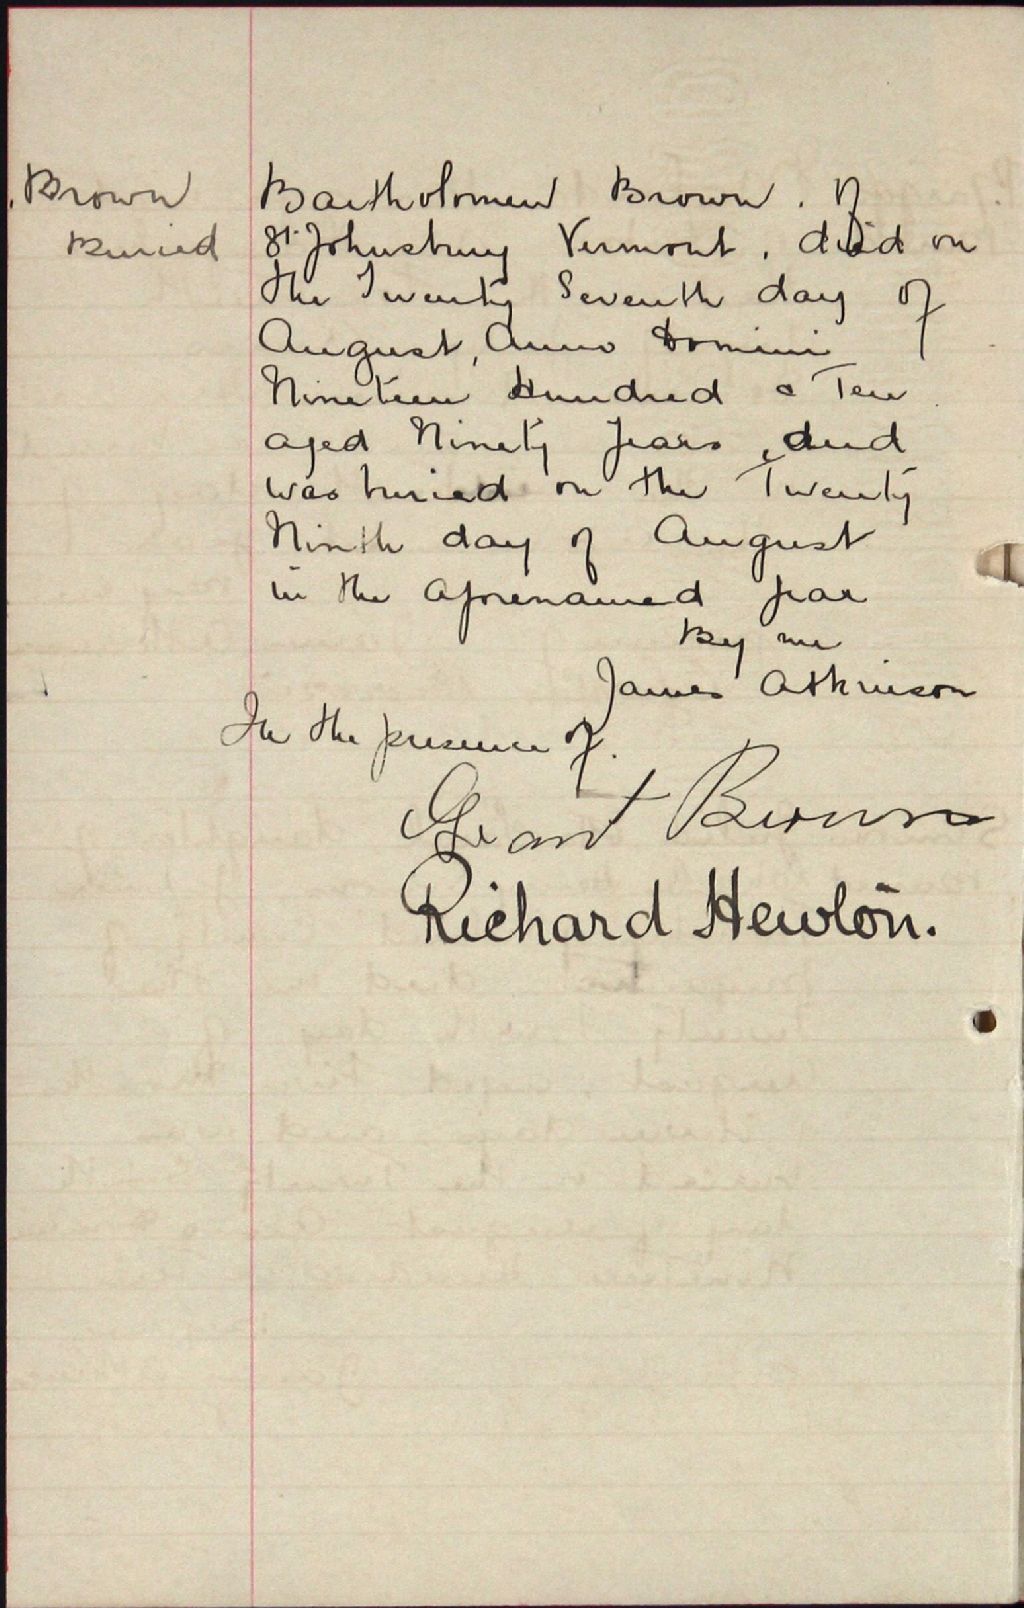 Brown
Buried
Bartholomew Brown. of
St. Johnsbury Vermont, died on
the Twenty Seventh day of
August, Anno Domini
Nineteen Hundred & Ten
aged Ninety years, and
was buried on the Twenty
Ninth day of August
in the aforenamed year
By me
James Atkinson
In the presence of.
Grant Brown
Richard Hewton.